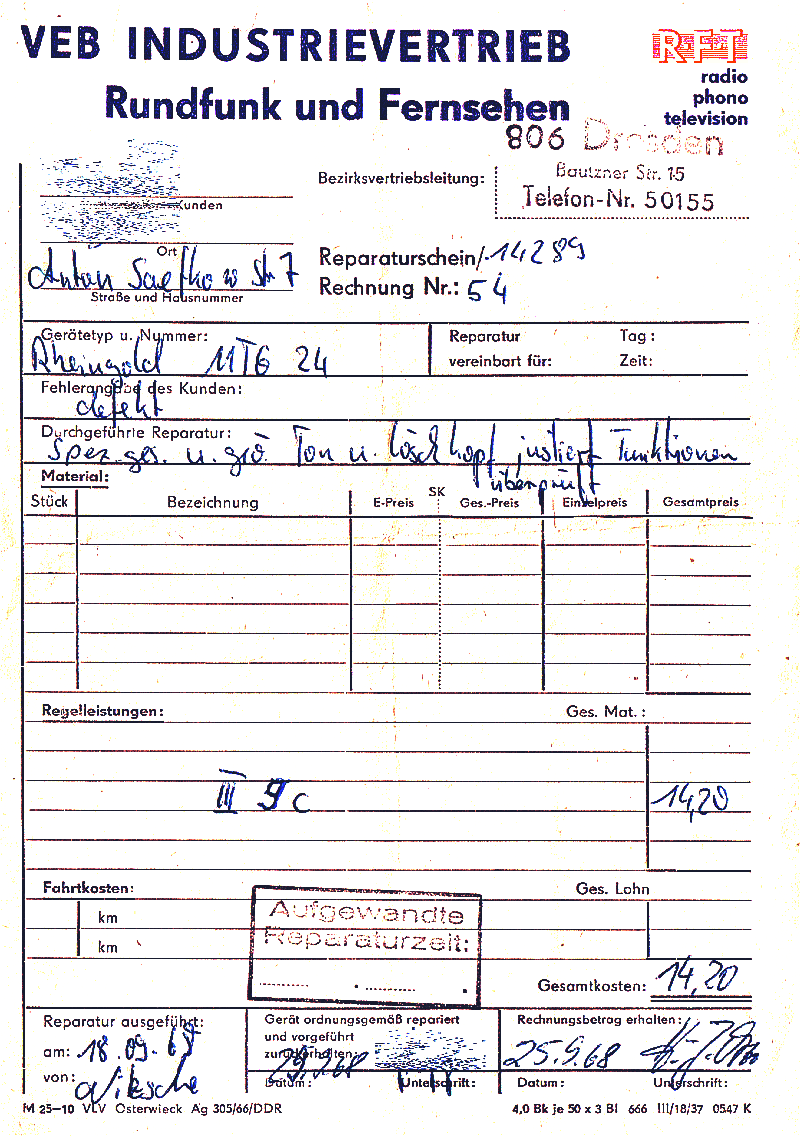 VEB INDUSTRIEVERTRIEB
Rundfunk und Fernsehen
RFT
radio
phono
television
806 Dresden
Bautzner Str. 15
Telefon-Nr. 50155
Bezirksvertriebsleitung:
Kunden
Ort
Anton Saefkow Str 7
Straße und Hausnummer
Reparaturschein/ 14289
Rechnung Nr.: 54
Gerätetyp u. Nummer:
Rheingold
24
Reparatur Tag:
vereinbart für: Zeit:
Fehlerangabe des Kunden:
defekt
Durchgeführte Reparatur:
Ton u. Löschkopf justiert Funktionen
überprüft
Material:
Stück Bezeichnung E-Preis SK Ges.-Preis Einzelpreis Gesamtpreis
Regelleistungen: Ges. Mat.:
III 9c 14,20
Fahrtkosten: Ges. Lohn
km
km
Aufgewandte
Reparaturzeit:
Gesamtkosten: 14,20
Reparatur ausgeführt:
am: 18.09.68
von: Nitsche
Gerät ordnungsgemäß repariert
und vorgeführt
zurückerhalten:
Datum: Unterschrift:
Rechnungsbetrag erhalten:
25.9.68
Datum: Unterschrift:
M 25—10 VLV Osterwieck Ag 305/66/DDR
4,0 Bk je 50 x 3 Bl 666 III/18/37 0547 K